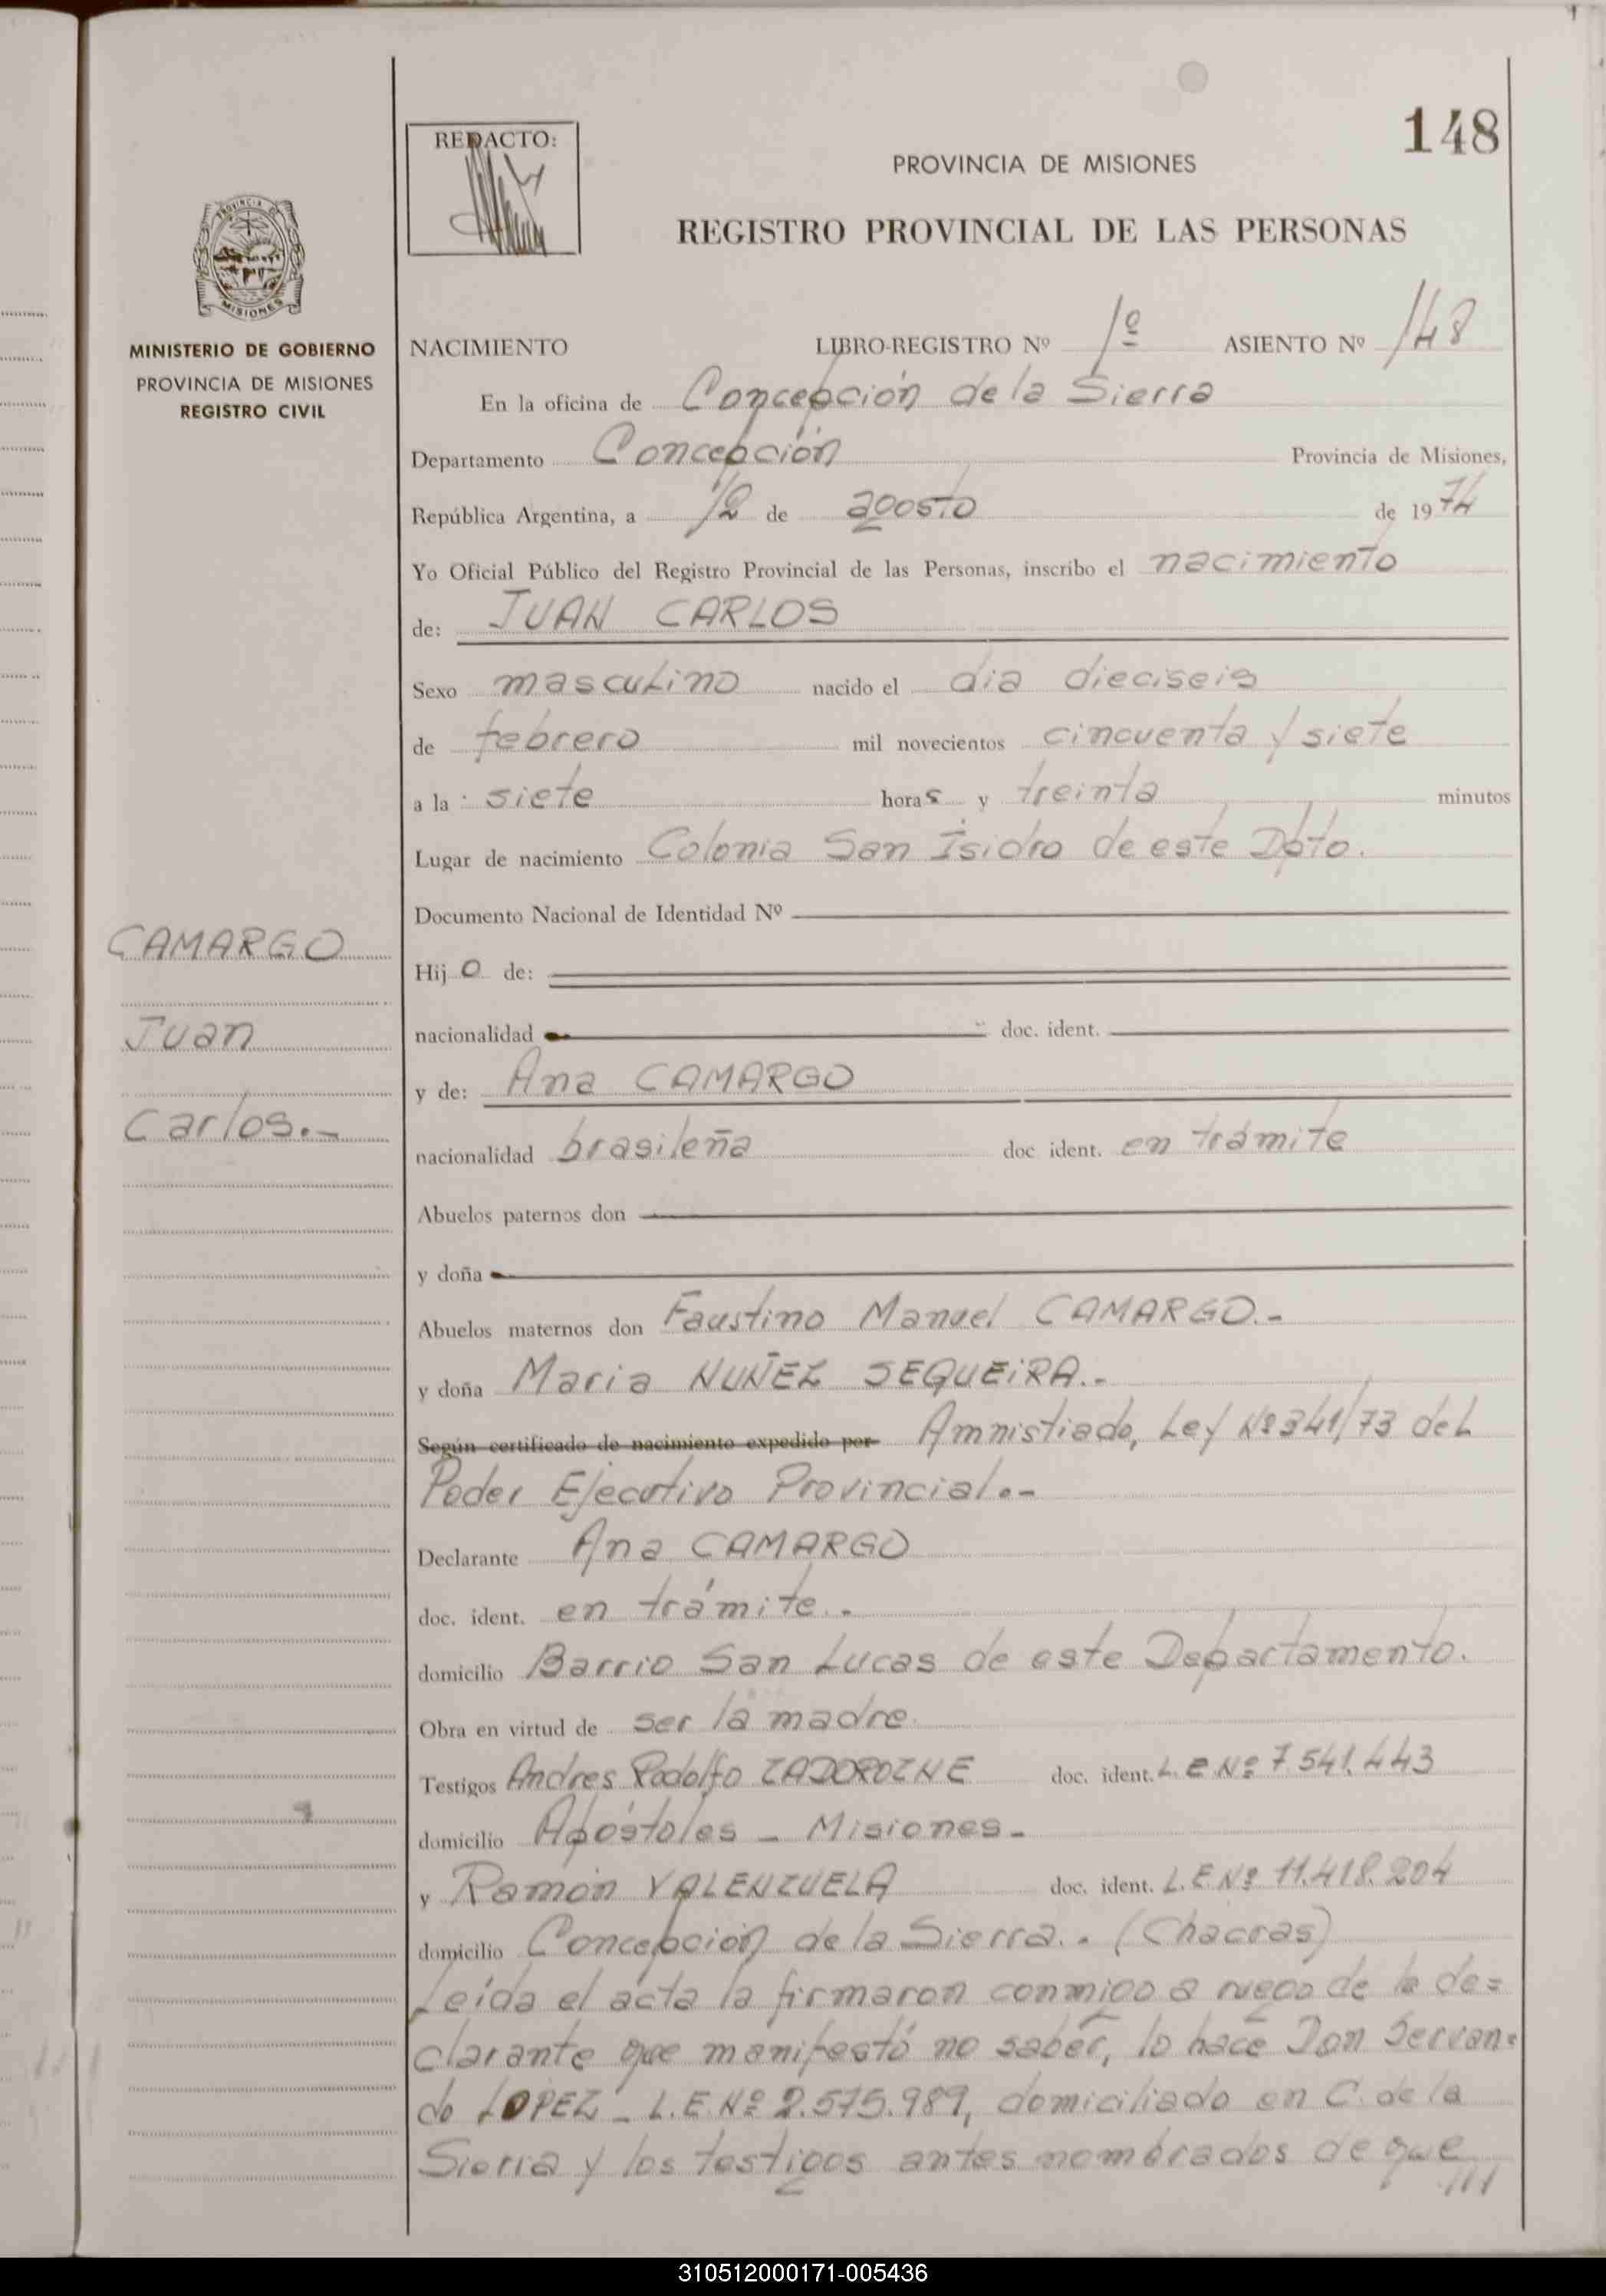 148
REDACTO:
PROVINCIA DE MISIONES
REGISTRO PROVINCIAL DE LAS PERSONAS
PROVINCIA DE
MISIONES
MINISTERIO DE GOBIERNO
PROVINCIA DE MISIONES
REGISTRO CIVIL
NACIMIENTO LIBRO-REGISTRO Nº 1º ASIENTO Nº 148
En la oficina de Concepción de la Sierra
Departamento Concepción Provincia de Misiones,
República Argentina, a 12 de agosto de 1974
Yo Oficial Público del Registro Provincial de las Personas, inscribo el nacimiento
de: JUAN CARLOS
Sexo masculino nacido el dia dieciseis
de febrero mil novecientos cincuenta y siete
a la siete horas y treinta minutos
Lugar de nacimiento Colonia San Isidro de este Dpto.
Documento Nacional de Identidad Nº
CAMARGO
Hijo de:
Juan
nacionalidad doc. ident.
y de: Ana CAMARGO
Carlos.-
nacionalidad brasileña doc ident. en trámite
Abuelos paternos don
y doña
Abuelos maternos don Faustino Manuel CAMARGO.-
y doña Maria NUÑEZ SEQUEIRA.-
Según certificado de nacimiento expedido por Amnistiado, Ley Nº 341/73 del
Poder Ejecutivo Provincial.-
Declarante Ana CAMARGO
doc. ident. en trámite.-
domicilio Barrio San Lucas de este Departamento.
Obra en virtud de ser la madre
Testigos Andres Rodolfo ZADOROZNE doc. ident. L.E.Nº 7.541.443
domicilio Apóstoles - Misiones-
y Ramón VALENZUELA doc. ident. L.E Nº 11.418.204
domicilio Concepción de la Sierra.. (Chacras)
Leída el acta la firmaron conmigo a ruego de la de=
clarante que manifestó no saber, lo hace Don Servan=
do LOPEZ - L.E.Nº 2.575.989, domiciliado en C. de la
Sierra y los testigos antes nombrados de que
///
310512000171-005436